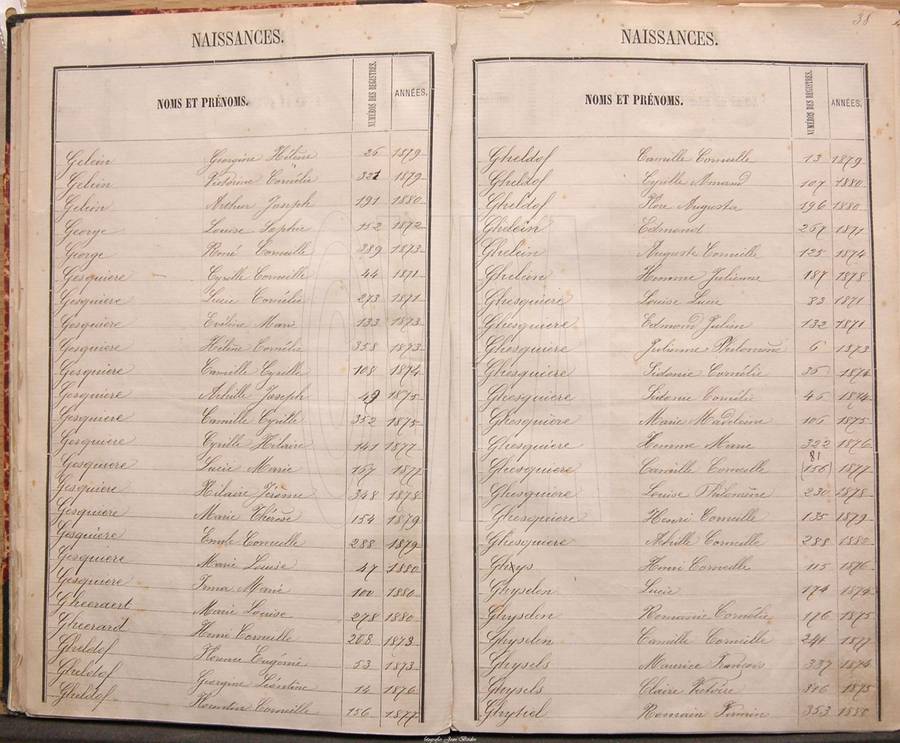 38
NAISSANCES.
NOMS ET PRÉNOMS. NUMÉROS DES REGISTRES. ANNÉES.
Gelein Georgine Hélène 26 1879
Gelein Victorine Cornélie 321 1879
Gelein Arthur Joseph 191 1880
George Louise Sophie 152 1872
George René Corneille 389 1873
Gesquiere Cyrille Corneille 44 1871
Gesquiere Lucie Cornélie 273 1871
Gesquiere Eveline Marie 133 1873
Gesquiere Hélène Cornélie 358 1873
Gesquiere Camille Cyrille 108 1874
Gesquiere Achille Joseph 49 1875
Gesquiere Camille Cyrille 352 1875
Gesquiere Cyrille Hilaire 141 1877
Gesquiere Lucie Marie 167 1877
Gesquiere Hilaire Jérome 348 1878
Gesquiere Marie Thérèse 154 1879
Gesquiere Emile Corneille 288 1879
Gesquiere Marie Louise 47 1880
Gesquiere Irma Marie 100 1880
Gheeraert Marie Louise 278 1880
Gheerard Henri Corneille 208 1873
Gheldof Florence Eugénie 53 1873
Gheldof Georgine Léontine 14 1876
Gheldof Florentin Corneille 156 1877
NAISSANCES.
NOMS ET PRÉNOMS. NUMÉROS DES REGISTRES. ANNÉES.
Gheldof Camille Corneille 13 1879
Gheldof Cyrille Amand 107 1880
Gheldof Flore Augusta 196 1880
Ghelein Edmond 267 1871
Ghelein Auguste Corneille 125 1874
Ghelein Julienne 187 1878
Ghesquiere Louise Lucie 83 1871
Ghesquiere Edmond Julien 132 1871
Ghesquiere Julienne Philomène 6 1873
Ghesquiere Sidonie Cornélie 35 1874
Ghesquiere Sidonie Cornélie 45 1874
Ghesquiere Marie Madeleine 105 1875
Ghesquiere Marie 322 1876
81
Ghesquiere Camille Corneille (156) 1877
Ghesquiere Louise Philomène 230 1878
Ghesquiere Henri Corneille 135 1879
Ghesquiere Achille Corneille 288 1880
Ghys Henri Corneille 115 1876
Ghyselen Lucie 174 1874
Ghyselen Romanie Cornélie 176 1875
Ghyselen Camille Corneille 241 1877
Ghysels Maurice François 337 1874
Ghysels Claire Victoire 306 1875
Romain Firmin 353 1880